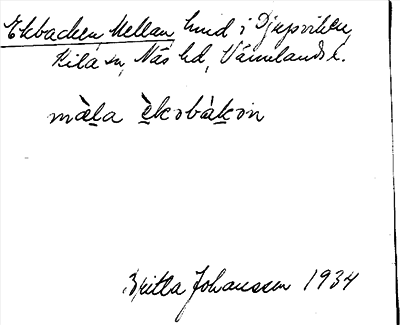 Ekbacken Mellan hmd i Djupviken,
Kila sn, Näs hd, Värmlands l.
mὰla ὲkobàkơn
Britta Johansson 1934